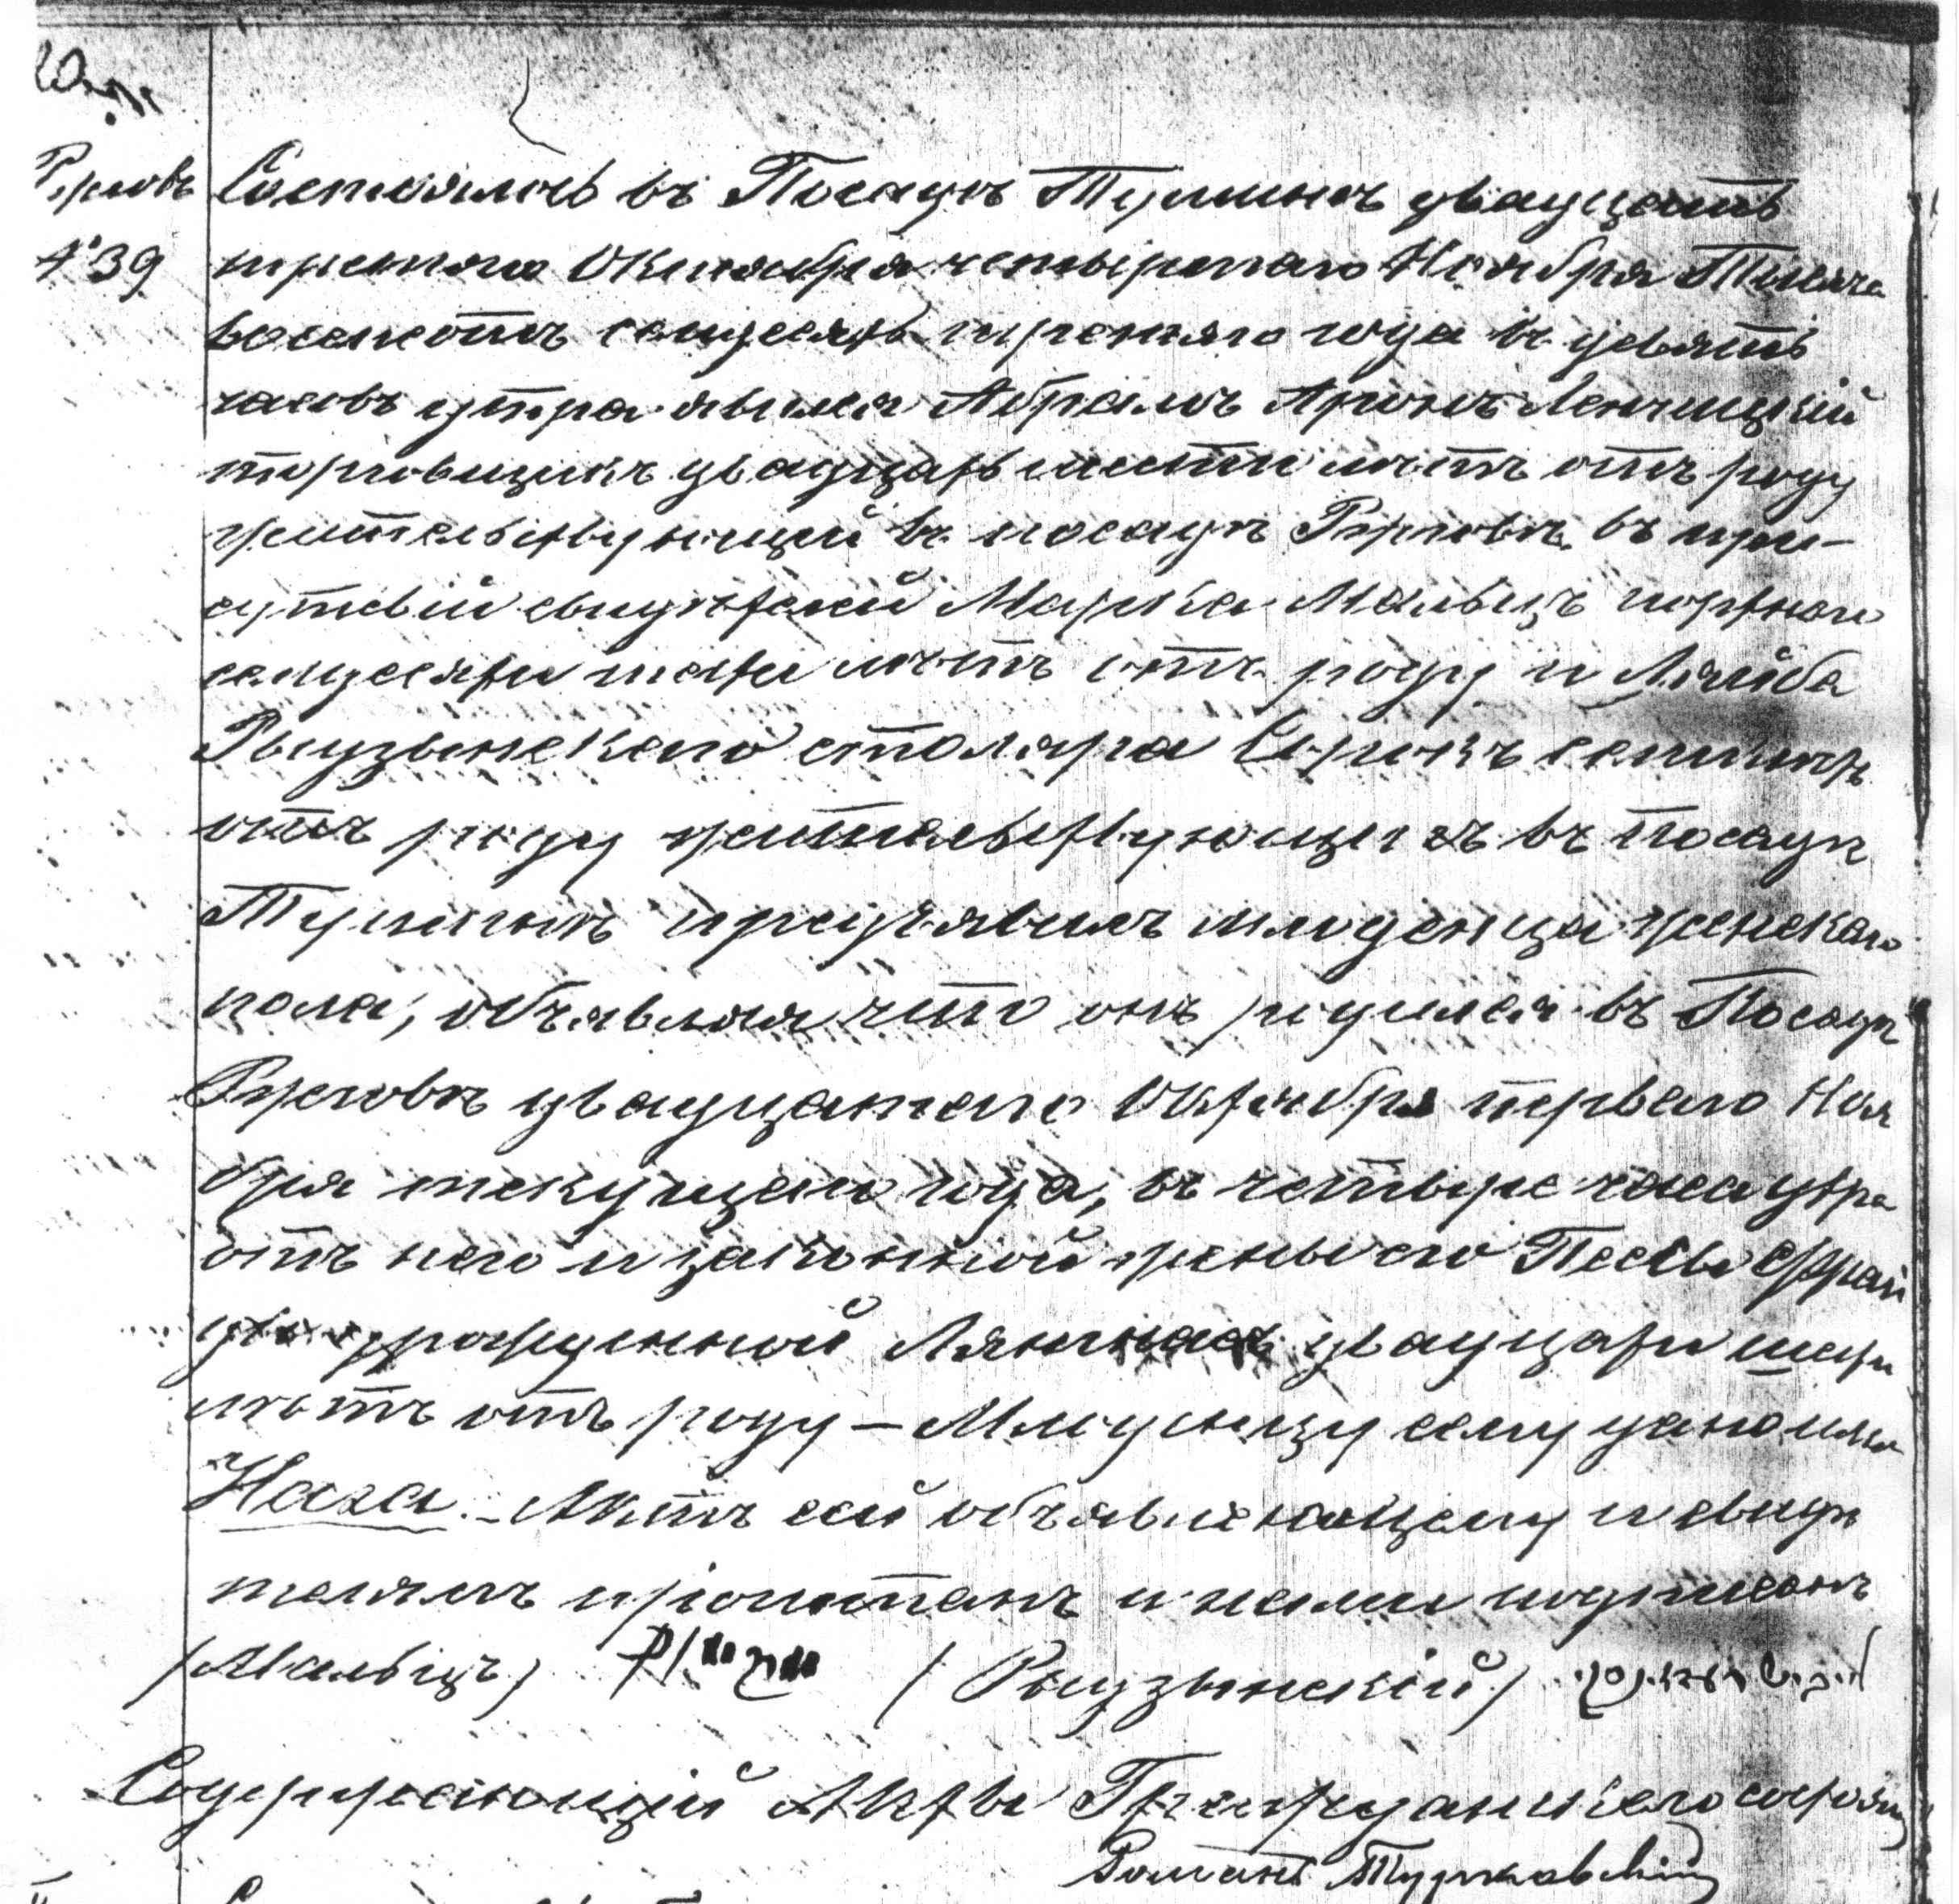 Ржговъ
№ 39
Состоялось въ Посадѣ Тушинѣ двадцать
третьяго Октября четвертаго Ноября Тысяча
восемсотъ семдесятъ третьяго года въ девять
часовъ утра явился Абрамъ Аронъ Ленчицкій
торговщикъ двадцать шести лѣтъ отъ роду
жительствующій въ посадѣ Ржговѣ въ при-
сутствіи свидѣтелей Марка Мальцъ портнаго
семдесяти шести лѣтъ отъ роду и Ляйба
Рыдзынскаго столяра Сорокъ семи лѣтъ
отъ роду жительствующихъ въ Посадѣ
Тушинѣ предъявилъ младенца женскаго
пола, объявляя что онъ родился въ Посадѣ
Ржговѣ двадцатаго Октября перваго Ноя
бря текущаго года, въ четыре часа утра
отъ него и законной жены его Пессы Фрай
ды урожденной двадцати шести
лѣтъ отъ роду — Младенцу сему дано имя
Наха. — Актъ сей объявляющему и свидѣ
телямъ прочитанъ и нами подписанъ
/Мальцъ/ / Рыдзынскій /
Содержающій Акты Гражданскаго состоян
Романъ